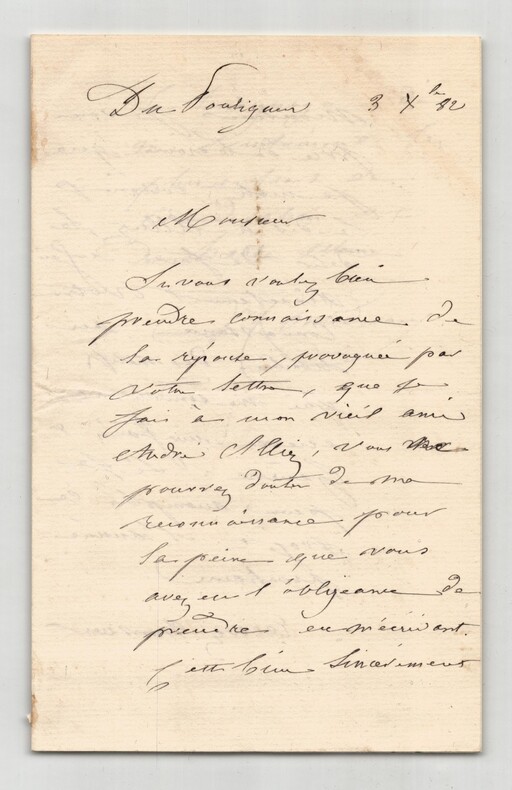 Du Pouliguen 3 Xbre 82
Monsieur
Si vous voulez bien
prendre connaissance de
la réponse, provoquée par
votre lettre, que je
fais à mon vieil ami
André Alliez, vous
pourrez douter de ma
reconnaissance pour
la peine que vous
avez eu l'obligeance de
prendre en m'écrivant.
C'est bien sincèrement